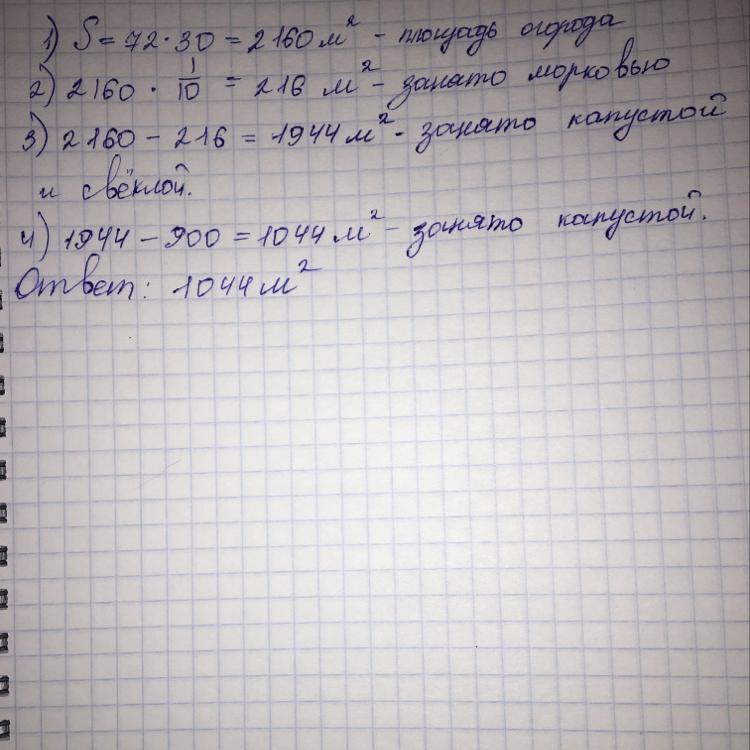 1) S = 72 · 30 = 2160 м² - площадь огорода
2) 2160 · 1/10 = 216 м² - занято морковью
3) 2160 - 216 = 1944 м² - занято капустой
и свёклой.
4) 1944 - 900 = 1044 м² - занято капустой.
Ответ: 1044 м²